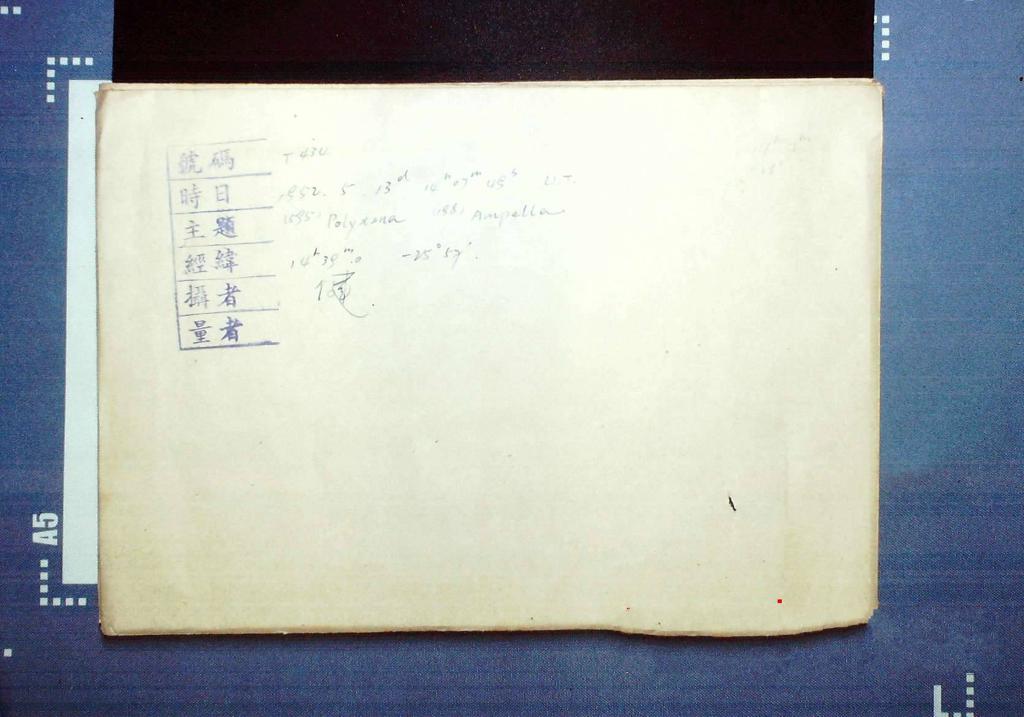 號碼 T 434
時日 1952. 5. 13ᵈ 14ʰ 07ᵐ 49ˢ U.T.
主題 (595) Polyxena (198) Ampella
經緯 14ʰ 39ᵐ.0 -25° 57'
攝者
量者
A5